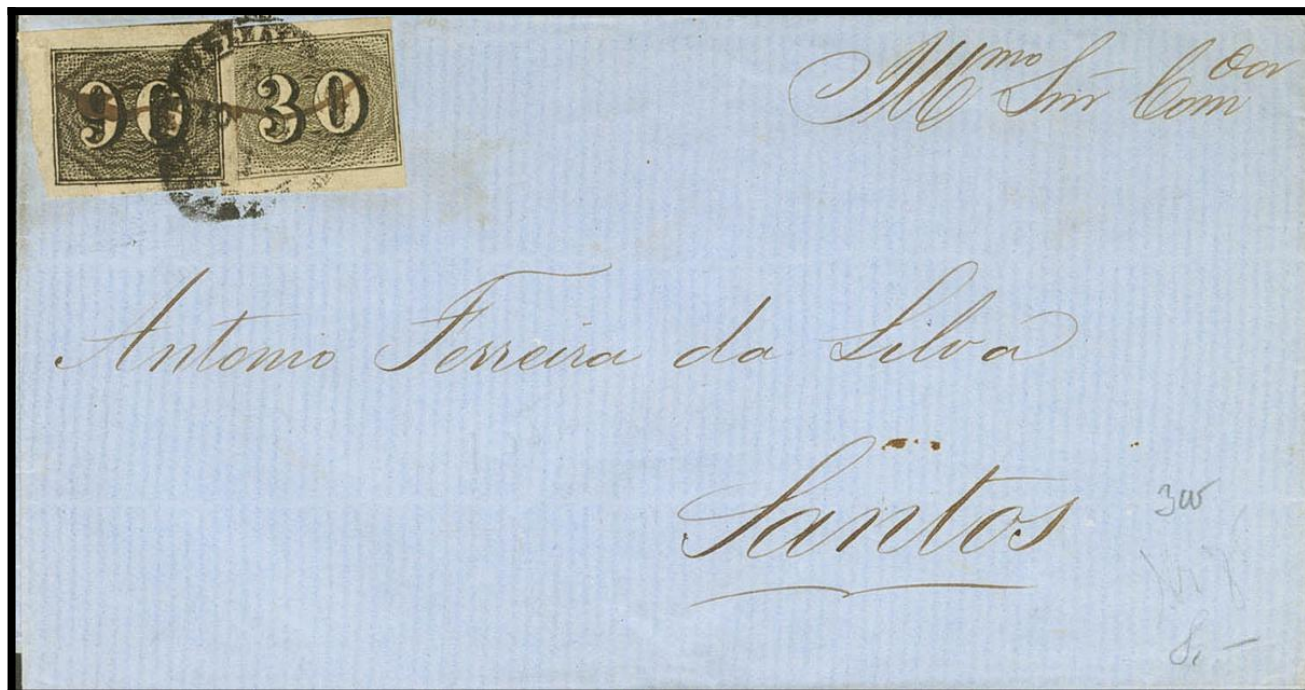 90 30
Illmo Snr Comdor
Antonio Ferreira da Silva
Santos
300